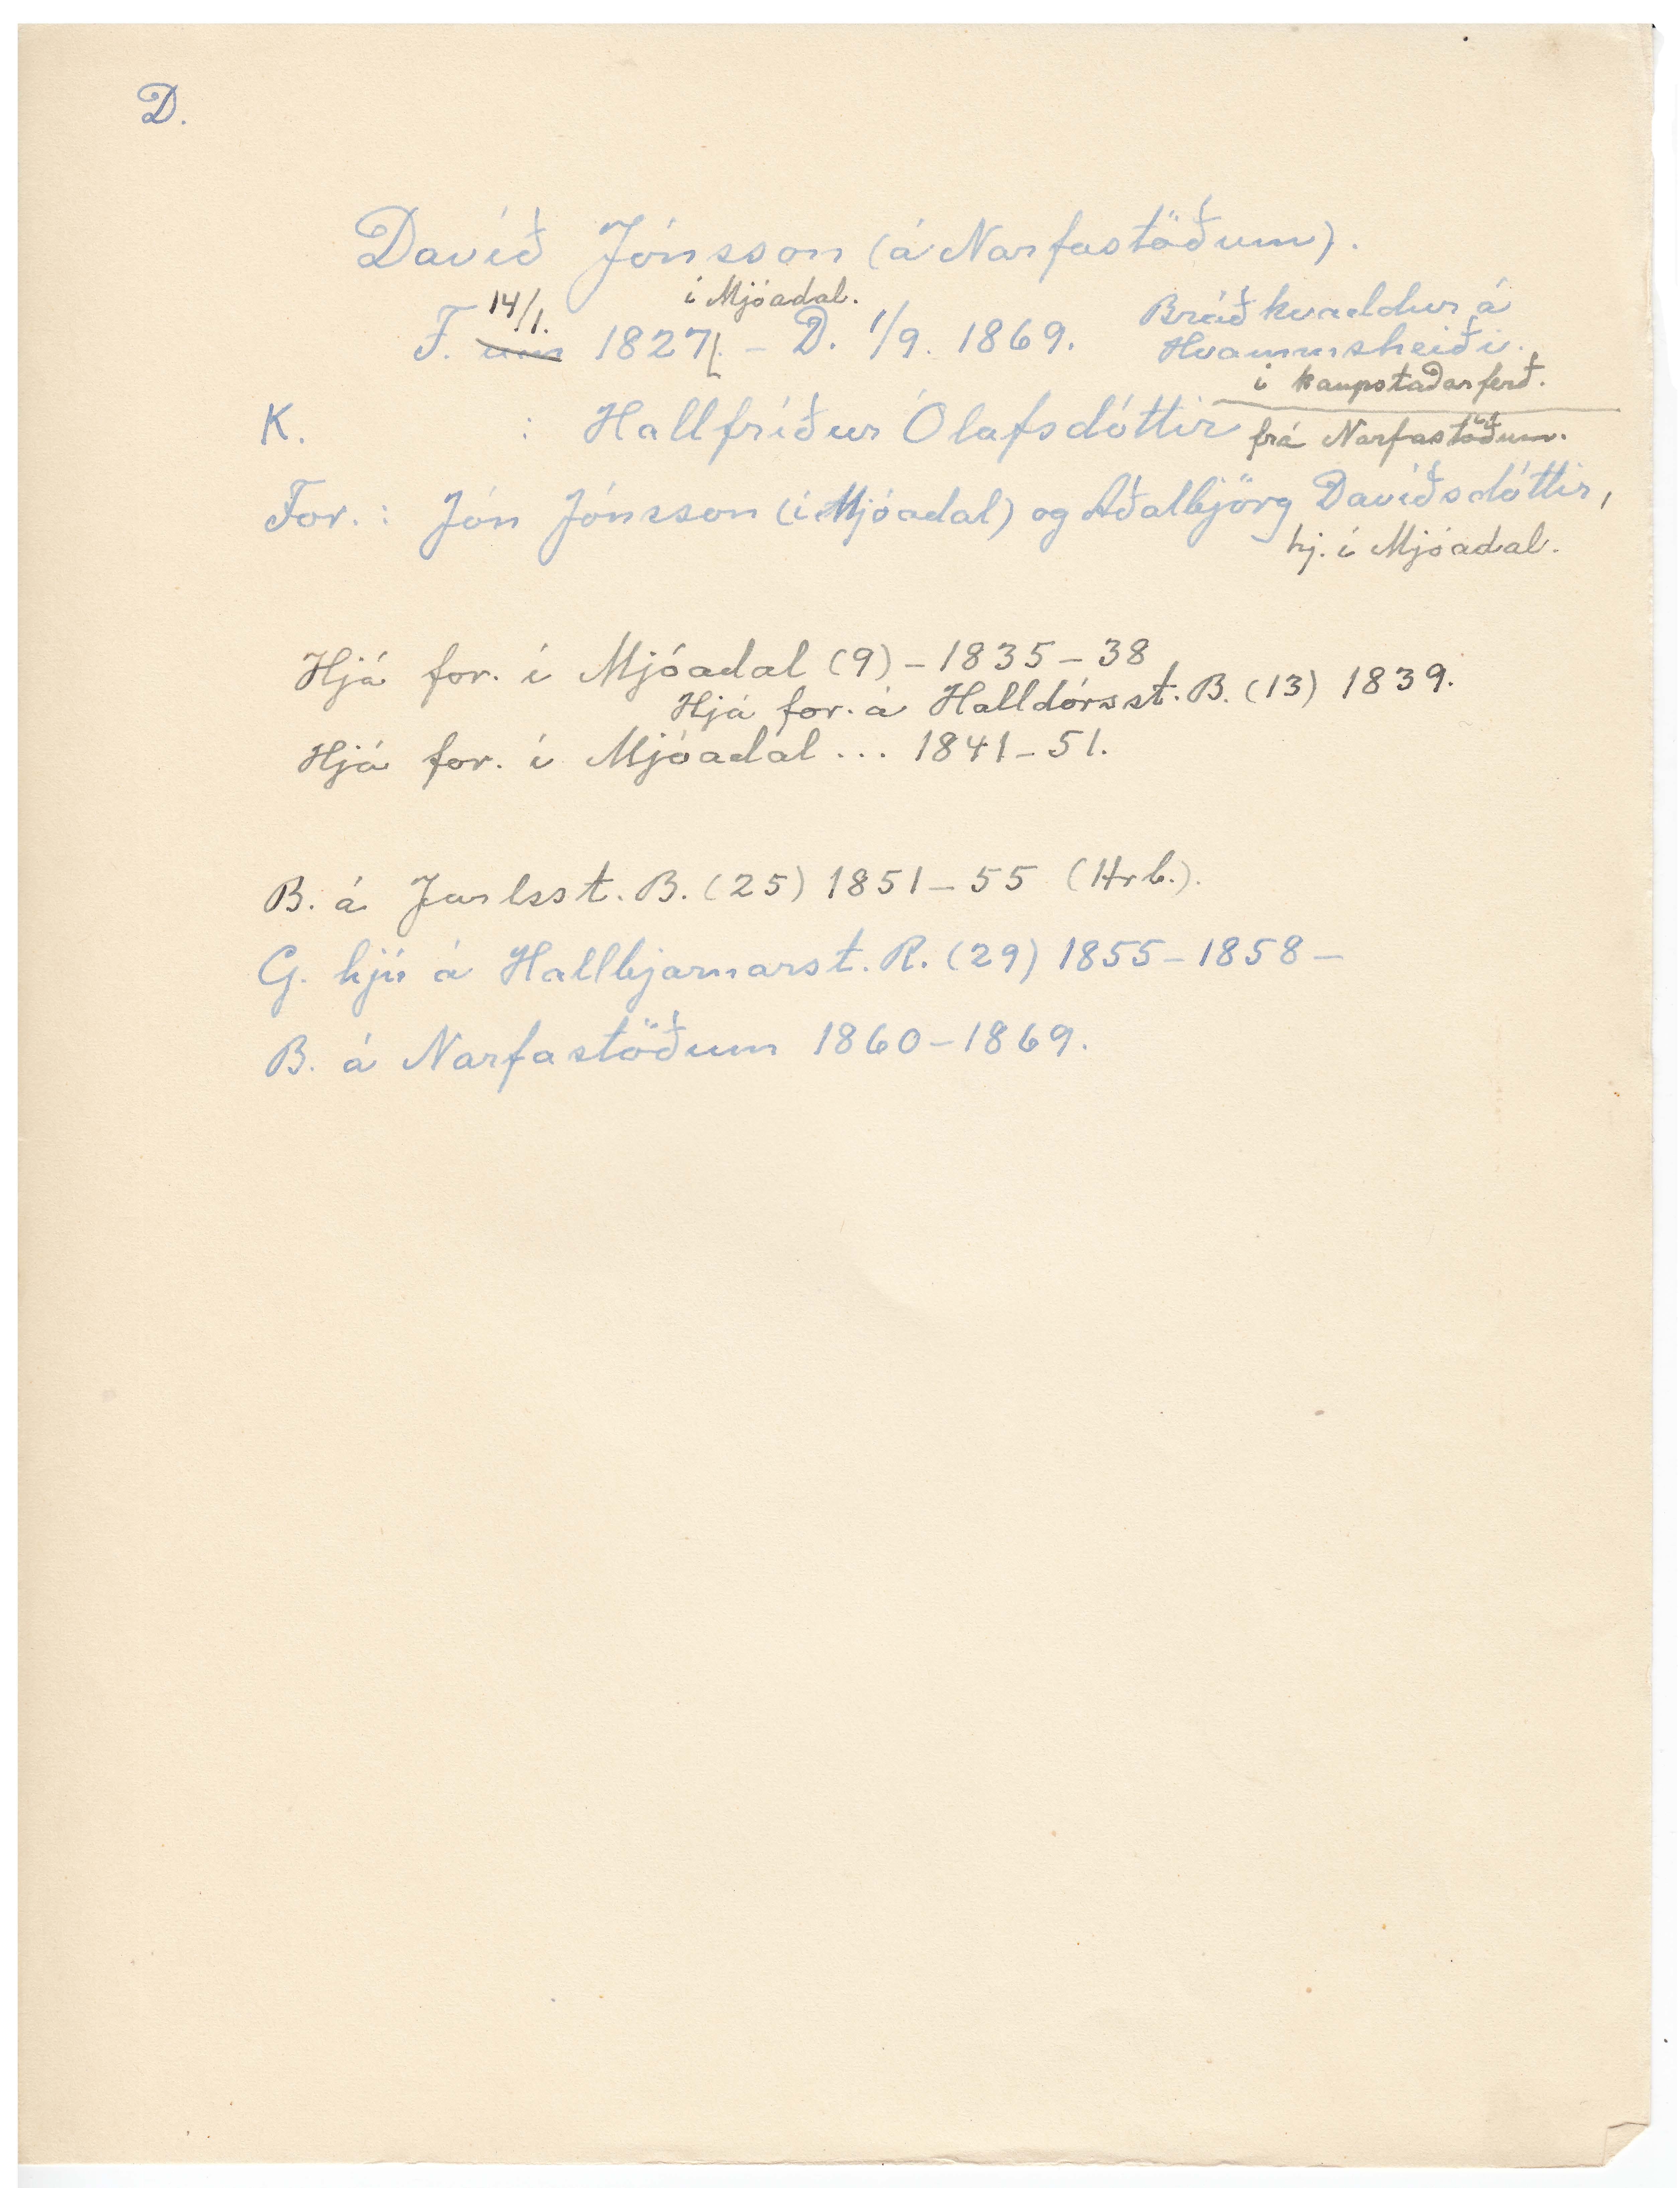 D.
Davíð Jónsson (á Narfastöðum).
14/1. í Mjóadal.
F. um 1827. – D. 1/9. 1869. Bráðkvaddur á
Hvammsheiði.
í kaupstaðarferð.
K. : Hallfríður Ólafsdóttir frá Narfastöðum.
For. : Jón Jónsson (í Mjóadal) og Aðalbjörg Davíðsdóttir,
hj. í Mjóadal.
Hjá for. í Mjóadal (9) – 1835 – 38
Hjá for. á Halldórsst. B. (13) 1839.
Hjá for. í Mjóadal ... 1841 – 51.
B. á Jarlsst. B. (25) 1851 – 55 (Hrb.).
G. hjú á Hallbjarnarst. R. (29) 1855 – 1858 –
B. á Narfastöðum 1860 – 1869.